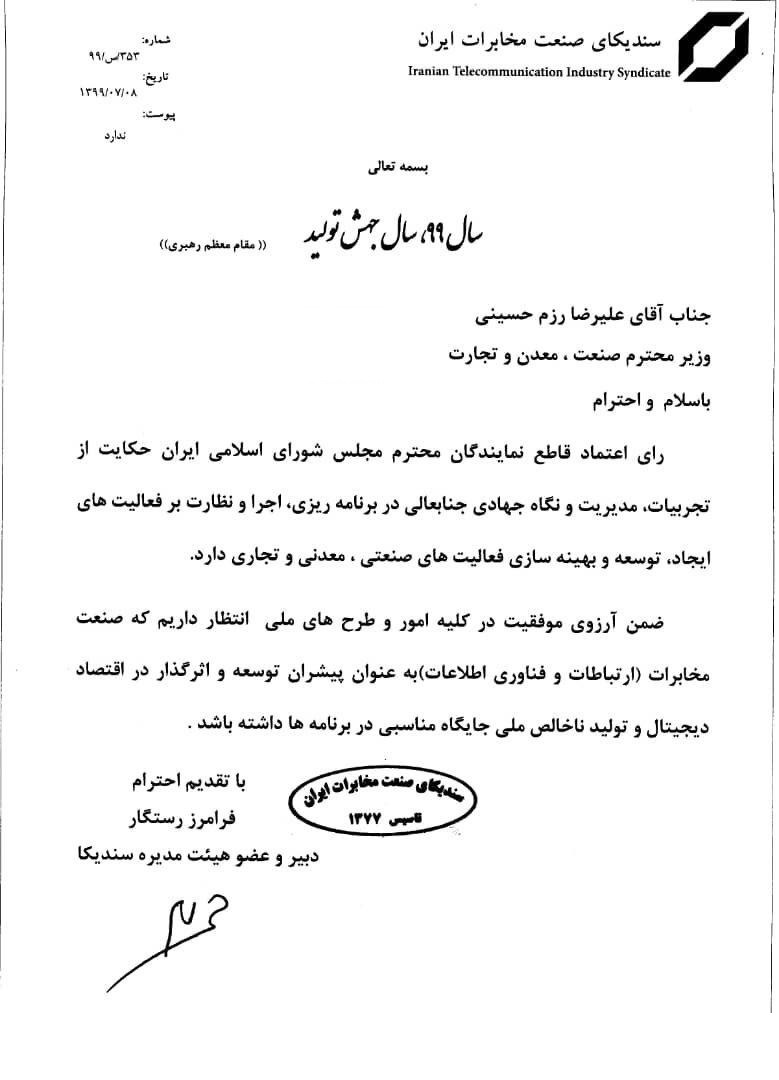 سندیکای صنعت مخابرات ایران
Iranian Telecommunication Industry Syndicate
شماره:
۳۵۳/س/۹۹
تاریخ:
۱۳۹۹/۰۷/۰۸
پیوست:
ندارد
بسمه تعالی
سال ۹۹، سال جهش تولید
(( مقام معظم رهبری))
جناب آقای علیرضا رزم حسینی
وزیر محترم صنعت ، معدن و تجارت
باسلام و احترام
رای اعتماد قاطع نمایندگان محترم مجلس شورای اسلامی ایران حکایت از
تجربیات، مدیریت و نگاه جهادی جنابعالی در برنامه ریزی، اجرا و نظارت بر فعالیت های
ایجاد، توسعه و بهینه سازی فعالیت های صنعتی ، معدنی و تجاری دارد.
ضمن آرزوی موفقیت در کلیه امور و طرح های ملی انتظار داریم که صنعت
مخابرات (ارتباطات و فناوری اطلاعات)به عنوان پیشران توسعه و اثرگذار در اقتصاد
دیجیتال و تولید ناخالص ملی جایگاه مناسبی در برنامه ها داشته باشد .
با تقدیم احترام
فرامرز رستگار
دبیر و عضو هیئت مدیره سندیکا
سندیکای صنعت مخابرات ایران
تاسیس ۱۳۷۷